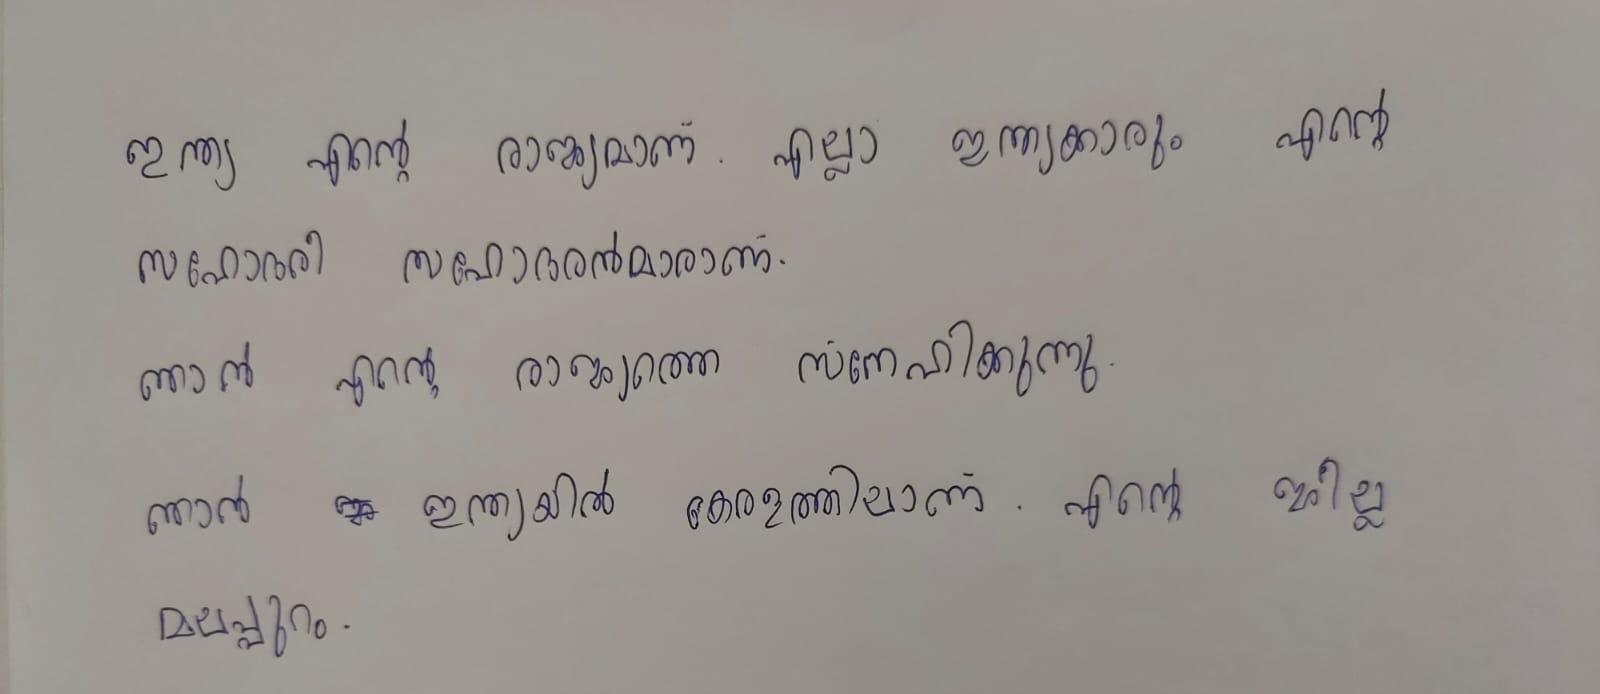 ഇന്ത്യ എന്റെ രാജ്യമാണ്. എല്ലാ ഇന്ത്യക്കാരും എന്റെ
സഹോദരീ സഹോദരൻമാരാണ്.
ഞാൻ എന്റെ രാജ്യത്തെ സ്നേഹിക്കുന്നു.
ഞാൻ ഇന്ത്യയിൽ കേരളത്തിലാണ്. എന്റെ ജില്ല
മലപ്പുറം.